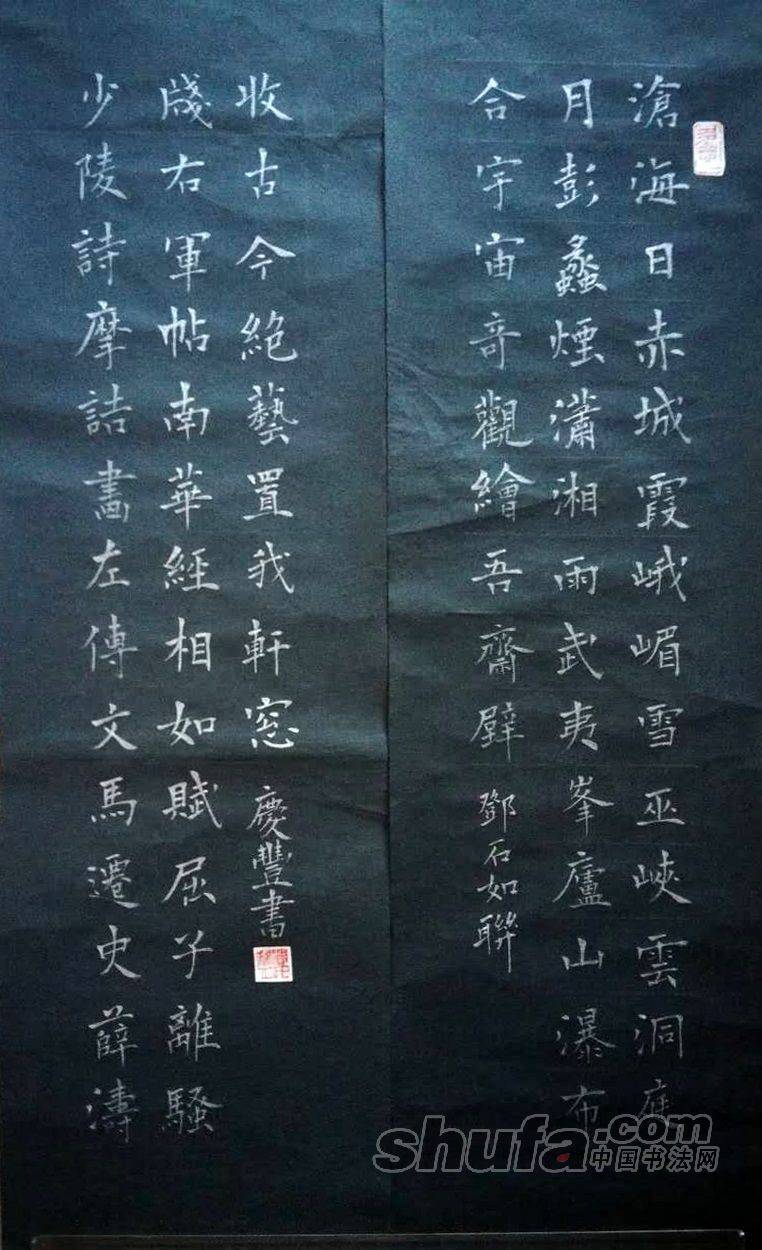 滄海日赤城霞峨嵋雪巫峽雲洞庭
月彭蠡煙瀟湘雨武夷峯廬山瀑布
合宇宙奇觀繪吾齋壁
鄧石如聯
少陵詩摩詰畫左傳文馬遷史薛濤
牋右軍帖南華經相如賦屈子離騷
收古今絕藝置我軒窓
慶豐書
shufa.com
中国书法网